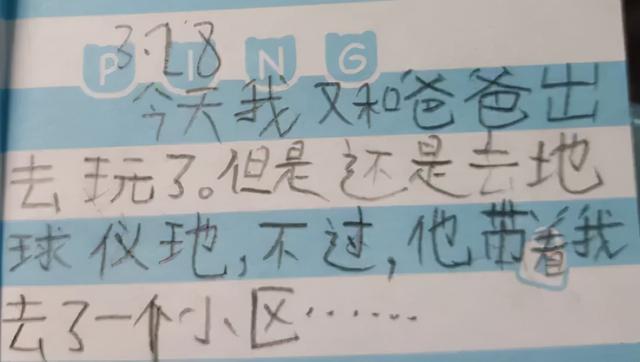 3.28
PING
今天我又和爸爸出
去玩了。但是还是去地
球仪玭,不过,他带着我
去了一个小区……